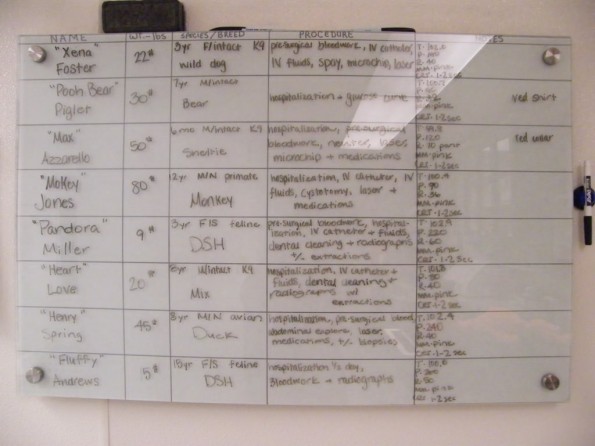 NAME WT.-lbs SPECIES/BREED PROCEDURE NOTES
"Xena" Foster
22#
3yr F/intact K9
wild dog
pre-surgical bloodwork, IV catheter,
IV fluids, spay, microchip, laser
mm-pink
CRT-1-2sec
"Pooh Bear" Pigler
30#
7yr M/intact
Bear
hospitalization +
mm-pink
CRT-1-2sec
red shirt
"Max" Azzarello
50#
6mo M/intact K9
hospitalization, pre-surgical
bloodwork, neuter,
microchip + medications
P-120
R-30 pant
mm-pink
CRT-1-2sec
"Mokey" Jones
80#
12yr M/N primate
Monkey
hospitalization, IV catheter, IV
fluids, cystotomy, laser +
medications
T-100.4
P-90
mm-pink
CRT-1-2sec
"Pandora" Miller
9#
3yr F/S feline
DSH
pre-surgical bloodwork, hospital-
ization, IV catheter + fluids,
dental cleaning + radiographs
+/- extractions
T-102.9
P-220
R-60
mm-pink
CRT-1-2sec
"Heart" Love
20#
M/intact K9
Mix
hospitalization, IV catheter +
fluids, dental cleaning +
radiographs w/
extractions
R-40
mm-pink
CRT-1-2sec
"Henry" Spring
45#
8yr M/N avian
Duck
hospitalization, pre-surgical blood,
abdominal explore, laser,
medications, +/- biopsies
T-102.4
P-240
mm-pink
CRT-1-2sec
"Fluffy" Andrews
5#
15yr F/S feline
DSH
hospitalization 1/2 day,
bloodwork + radiographs
mm-pink
CRT-1-2sec